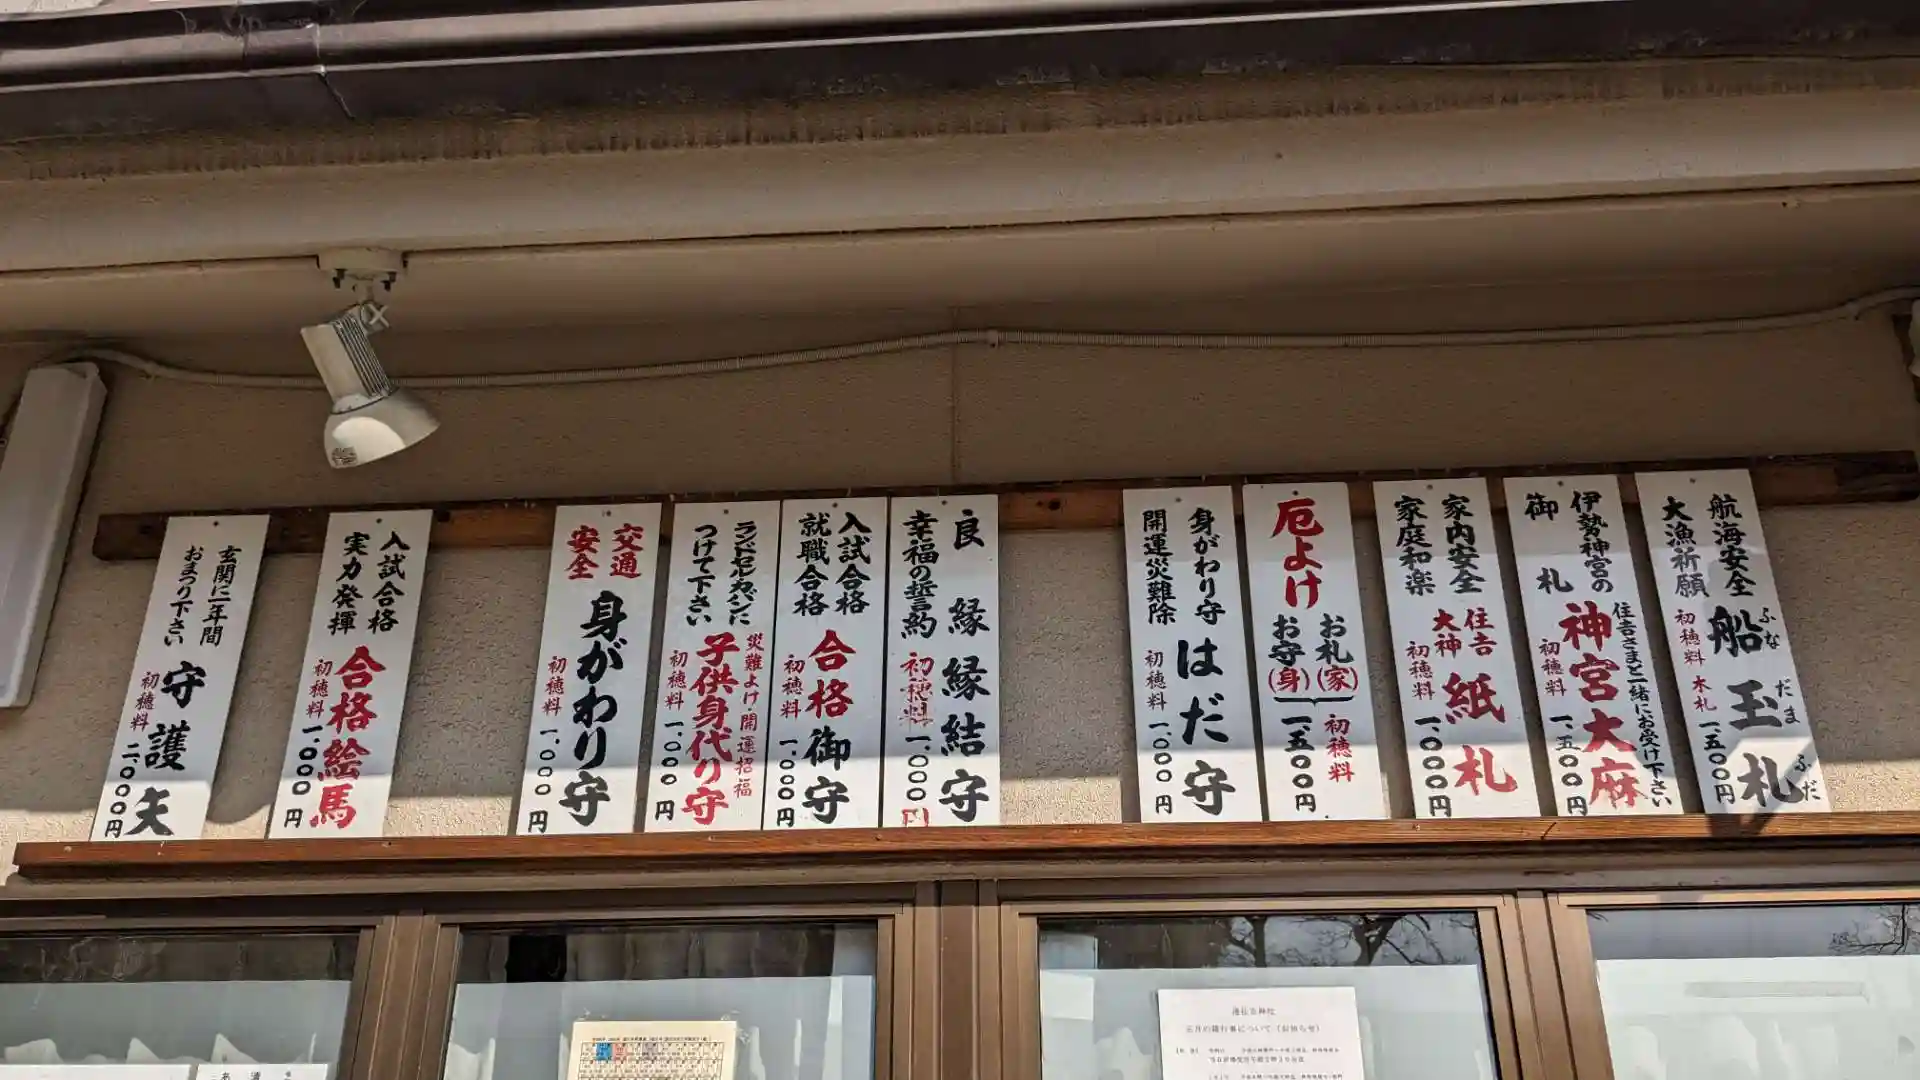 航海安全
大漁祈願
船玉札
ふなだまふだ
初穂料 木札 一、五〇〇円
伊勢神宮の
御札
住吉さまと一緒にお受け下さい
神宮大麻
初穂料 一、五〇〇円
家内安全
家庭和楽
住吉
大神
紙札
初穂料 一、〇〇〇円
厄よけ
お札(家)
お守(身)
初穂料
一、五〇〇円
身がわり守
開運災難除
はだ守
初穂料 一、〇〇〇円
良縁縁結守
幸福の誓約
初穂料 一、〇〇〇円
入試合格
就職合格
合格御守
初穂料 一、〇〇〇円
ランドセル、カバンに
つけて下さい
災難よけ・開運招福
子供身代り守
初穂料 一、〇〇〇円
交通
安全
身がわり守
初穂料 一、〇〇〇円
入試合格
実力発揮
合格絵馬
初穂料 一、〇〇〇円
玄関に一年間
おまつり下さい
守護矢
初穂料 二、〇〇〇円